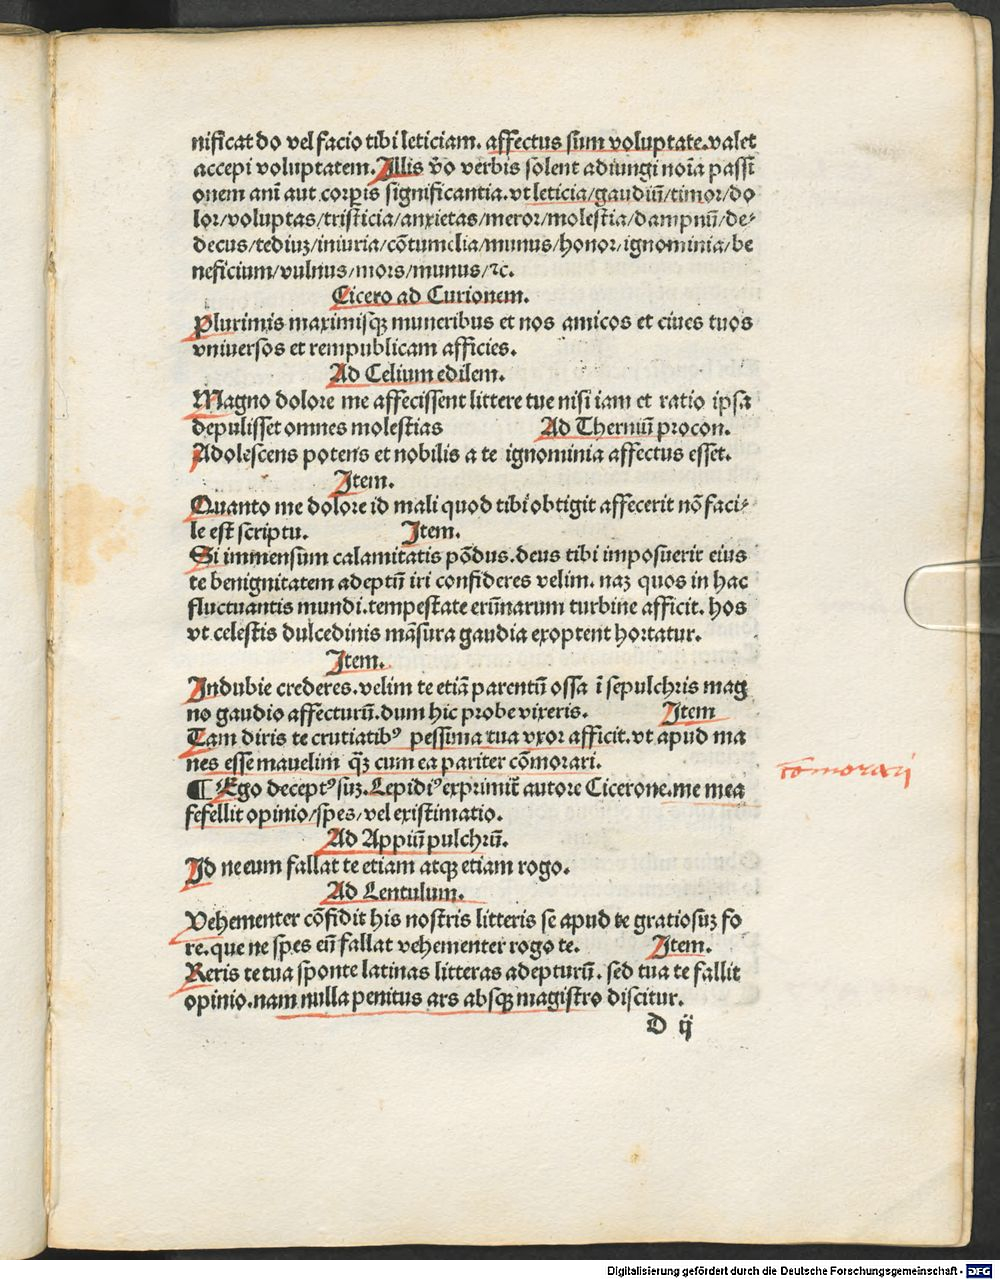 nificat do vel facio tibi leticiam. affectus sum voluptate. valet
accepi voluptatem. Illis v̄o verbis solent adiungi noīa passi
onem ani aut corꝑis significantia. vt leticia/gaudiū/timor/do
lor/voluptas/tristicia/anxietas/meror/molestia/dampnū/de⸗
decus/tediuꝫ/iniuria/cōtumelia/munus/honor/ignominia/be
neficium/vulnus/mors/munus/⁊c.
Cicero ad Curionem.
Plurimis maximisqꝫ muneribus et nos amicos et ciues tuos
vniuersos et rempublicam afficies.
Ad Celium edilem.
Magno dolore me affecissent littere tue nisi iam et ratio ipsa
depulisset omnes molestias Ad Thermiū procon.
Adolescens potens et nobilis a te ignominia affectus esset.
Item.
Quanto me dolore id mali quod tibi obtigit affecerit nō faci⸗
le est scriptu. Item.
Si immensum calamitatis pōdus. deus tibi imposuerit eius
te benignitatem adeptū iri confideres velim. naꝫ quos in hac
fluctuantis mundi. tempestate erūnarum turbine afficit. hos
vt celestis dulcedinis māsura gaudia exoptent hortatur.
Item.
Indubie crederes. velim te etiā parentū ossa ī sepulchris mag
no gaudio affecturū. dum hic probe vixeris. Item
Tam diris te crutiatibꝰ pessima tua vxor afficit. vt apud ma
nes esse mauelim qꝫ cum ea pariter cōmorari.
cōmorari
¶ Ego deceptꝰ suꝫ. Lepidiꝰ exprimit̄ autore Cicerone. me mea
fefellit opinio/spes/vel existimatio.
Ad Appiū pulchrū.
Id ne eum fallat te etiam atqꝫ etiam rogo.
Ad Lentulum.
Vehementer cōfidit his nostris litteris se apud te gratiosuꝫ fo
re. que ne spes eū fallat vehementer rogo te. Item.
Reris te tua sponte latinas litteras adepturū. sed tua te fallit
opinio. nam nulla penitus ars absqꝫ magistro discitur.
D ij
Digitalisierung gefördert durch die Deutsche Forschungsgemeinschaft - DFG